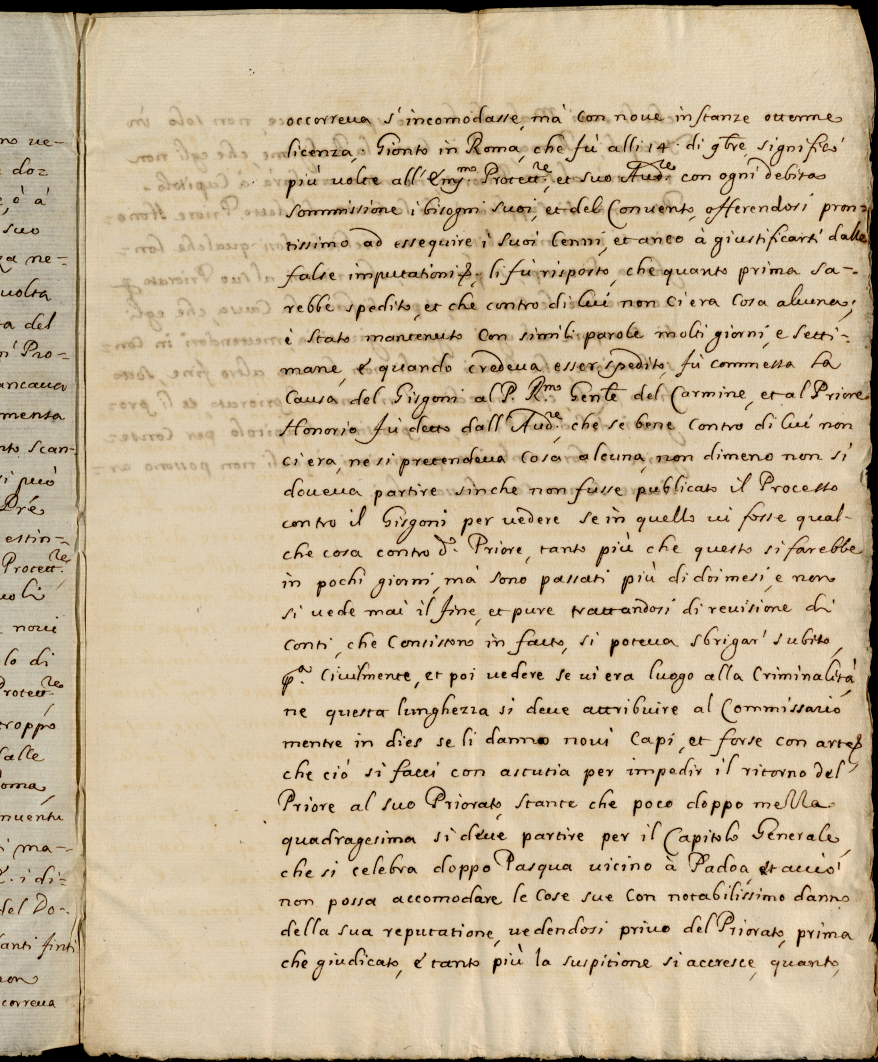 no ue-
doz
è, ò à
suo
za ne-
uolta
ta del
ni Pro-
ancaua
menta
nto scan-
si può
Pre
estin-
Protett.re
uoli
noui
lo di
Protett.re
troppo
salle
Roma,
nuentu
i ma-
i di-
del Do-
santi finti
non
correua
occorreua s'incomodasse, mà con noue instanze ottenne
licenza: Gionto in Roma, che fù alli 14. di 9bre significò
più uolte all'Emin.mo Protett.re, et suo Aud.re con ogni debita
sommissione i bisogni suoi, et del Conuento, offerendosi pron-
tissimo ad essequire i suoi Cenni, et anco à giustificarsi dalle
false imputationi; li fù risposto, che quanto prima sa-
rebbe spedito, et che contro di lui non ci era cosa alcuna;
è stato mantenuto con simili parole molti giorni, e setti-
mane, e quando credeua esser spedito, fù commessa la
Causa del Gisgoni al P. R.mo Gen̄le del Carmine, et al Priore
Honorio fù detto dall'Aud.re, che se bene contro di lui non
ci era, ne si pretendeua cosa alcuna, non dimeno non si
doueua partire sinche non fusse publicato il Processo
contro il Gisgoni per uedere se in quello ui fosse qual-
che cosa contro d.o Priore, tanto più che questo si farebbe
in pochi giorni, mà sono passati più di doi mesi, e non
si uede mai il fine, et pure trattandosi di reuisione di
Conti, che Consistono in fatto, si poteua sbrigar' subito,
p.a Ciuilmente, et poi uedere se ui era luogo alla Criminalità
ne questa lunghezza si deue attribuire al Commissario
mentre in dies se li danno noui Capi, et forse con arte,
che ciò si facci con astutia per impedir il ritorno del
Priore al suo Priorato, stante che poco doppo mezza
quadragesima si deue partire per il Capitolo Generale,
che si celebra doppo Pasqua uicino à Padoa, et acciò
non possa accomodare le Cose sue con notabilissimo danno
della sua reputatione, uedendosi priuo del Priorato, prima
che giudicato, e tanto più la suspitione si accresce, quanto,